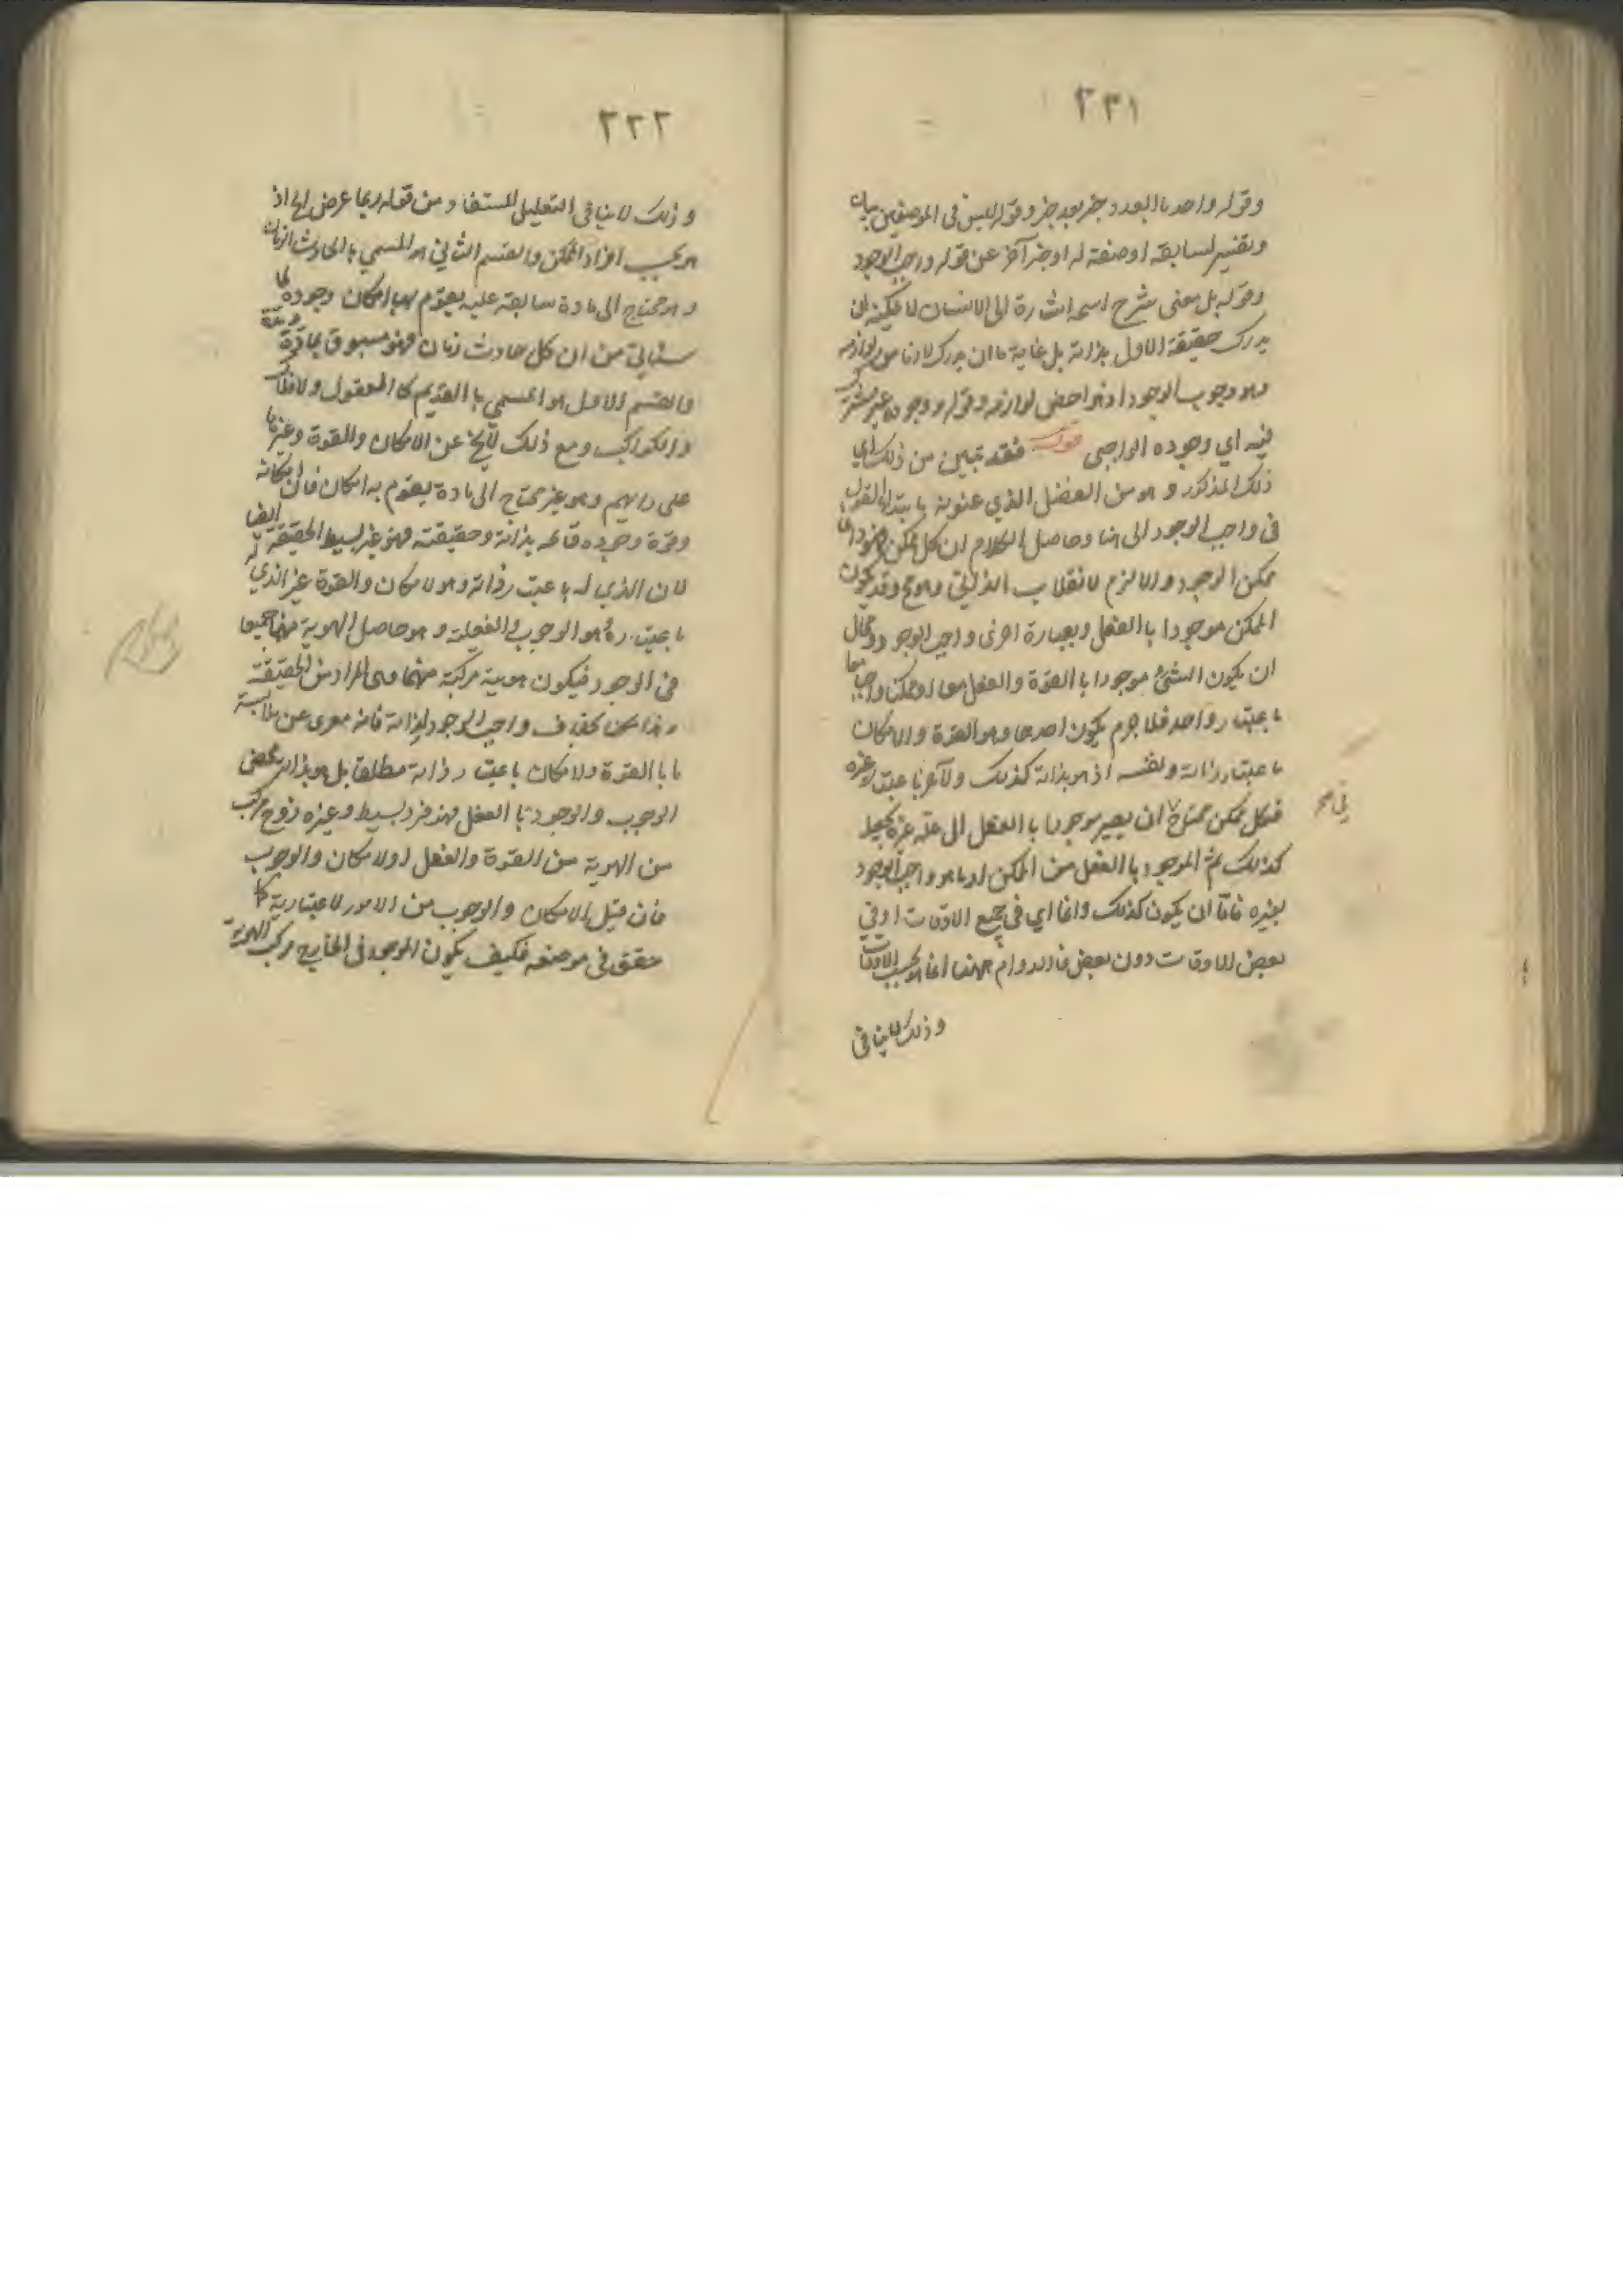 ٢٣١
وقوله واحد بالعدد خبر بعد خبر وقوله ليس في الموضعين بيان
وتفسير لسابقه او صفة له او خبر آخر عن قوله واجب الوجود
وقوله بل معنى شرح اسمه اشارة الى الانسان لا يمكنه ان
يدرك حقيقة الاول بذاته بل غاية ما ان يدرك لازما من لوازمه
وهو وجوب الوجود اذ هو اخص لوازمه وقوله ووجوده غير مشترك
فيه اي وجوده الواجبى قوله فقد تبين من ذلك اي
ذلك المذكور و هو من الفصل الذي عنونه بابتداء القول
في واجب الوجود الى هنا وحاصل الكلام ان كل ممكن فهو دائما
ممكن الوجود والا لزم الانقلاب الذاتي وهو مح وقد يكون
الممكن موجودا باالفعل وبعبارة اخرى واجب الوجود ومحال
ان يكون الشئ موجودا باالقوة والفعل معا او ممكنا وواجبا معا
باعتبار واحد فلا جرم يكون احدهما وهو القوة والامكان
باعتبار ذاته ونفسه اذ هو بذاته كذلك والآخر باعتبار غيره
فكل ممكن محتاج ان يصير موجودا باالفعل الى علة غيره يجعله
في صح
كذلك ثم الموجود باالفعل من الممكن او ما هو واجب الوجود
بغيره فاما ان يكون كذلك دائما اي في جميع الاوقات او في
بعض الاوقات دون بعض فالدوام ههنا انما هو بحسب الاوقات
وذلك لا ينافى
٢٣٢
وذلك لا ينافى التعليل المستفاد من قوله ربما عرض الى اذ
هو بحسب افراد الممكن والقسم الثاني هو المسمى باالحادث الزمانى
وهو محتاج الى مادة سابقة عليه يقوم بها امكان وجوده لما
سيأتي من ان كل حادث زمان فهو مسبوق بمادة ومدة
والقسم الاول هو المسمى باالقديم كا العقول والافلاك
والكواكب ومع ذلك لا يخ عن الامكان والقوة وغيرها
على رايهم وهو غير محتاج الى مادة يقوم به امكان فان امكانه
وقوة وجوده قائمه بذاته وحقيقته فهو غير بسيط الحقيقة ايضا
لان الذي له باعتبار ذاته وهو الامكان والقوة غير الذي له
باعتبار غيره هو الوجوب والفعلية و هو حاصل الهوية منهما جميعا
في الوجود فيكون هوية مركبة منهما وهى المراد من الحقيقة
وهذا بخلاف واجب الوجود لذاته فانه معرى عن ملابسة
ما باالقوة والامكان باعتبار ذاته مطلقا بل هو بذاته محض
الوجوب والوجود باالفعل فهذ فرد بسيط وغيره زوج مركب
من الهوية من القوة والفعل او الامكان والوجوب
فان قيل الامكان والوجوب من الامور الاعتبارية كما
حقق في موضعه فكيف يكون الموجود في الخارج مركب الهوية